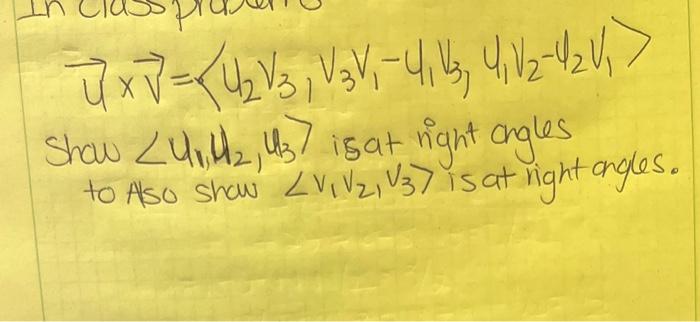 In class problems
u⃗ x v⃗ = <u₂v₃, v₃v₁-u₁v₃, u₁v₂-u₂v₁>
Show <u₁,u₂,u₃> is at right angles
to Also show <v₁v₂,v₃> is at right angles.